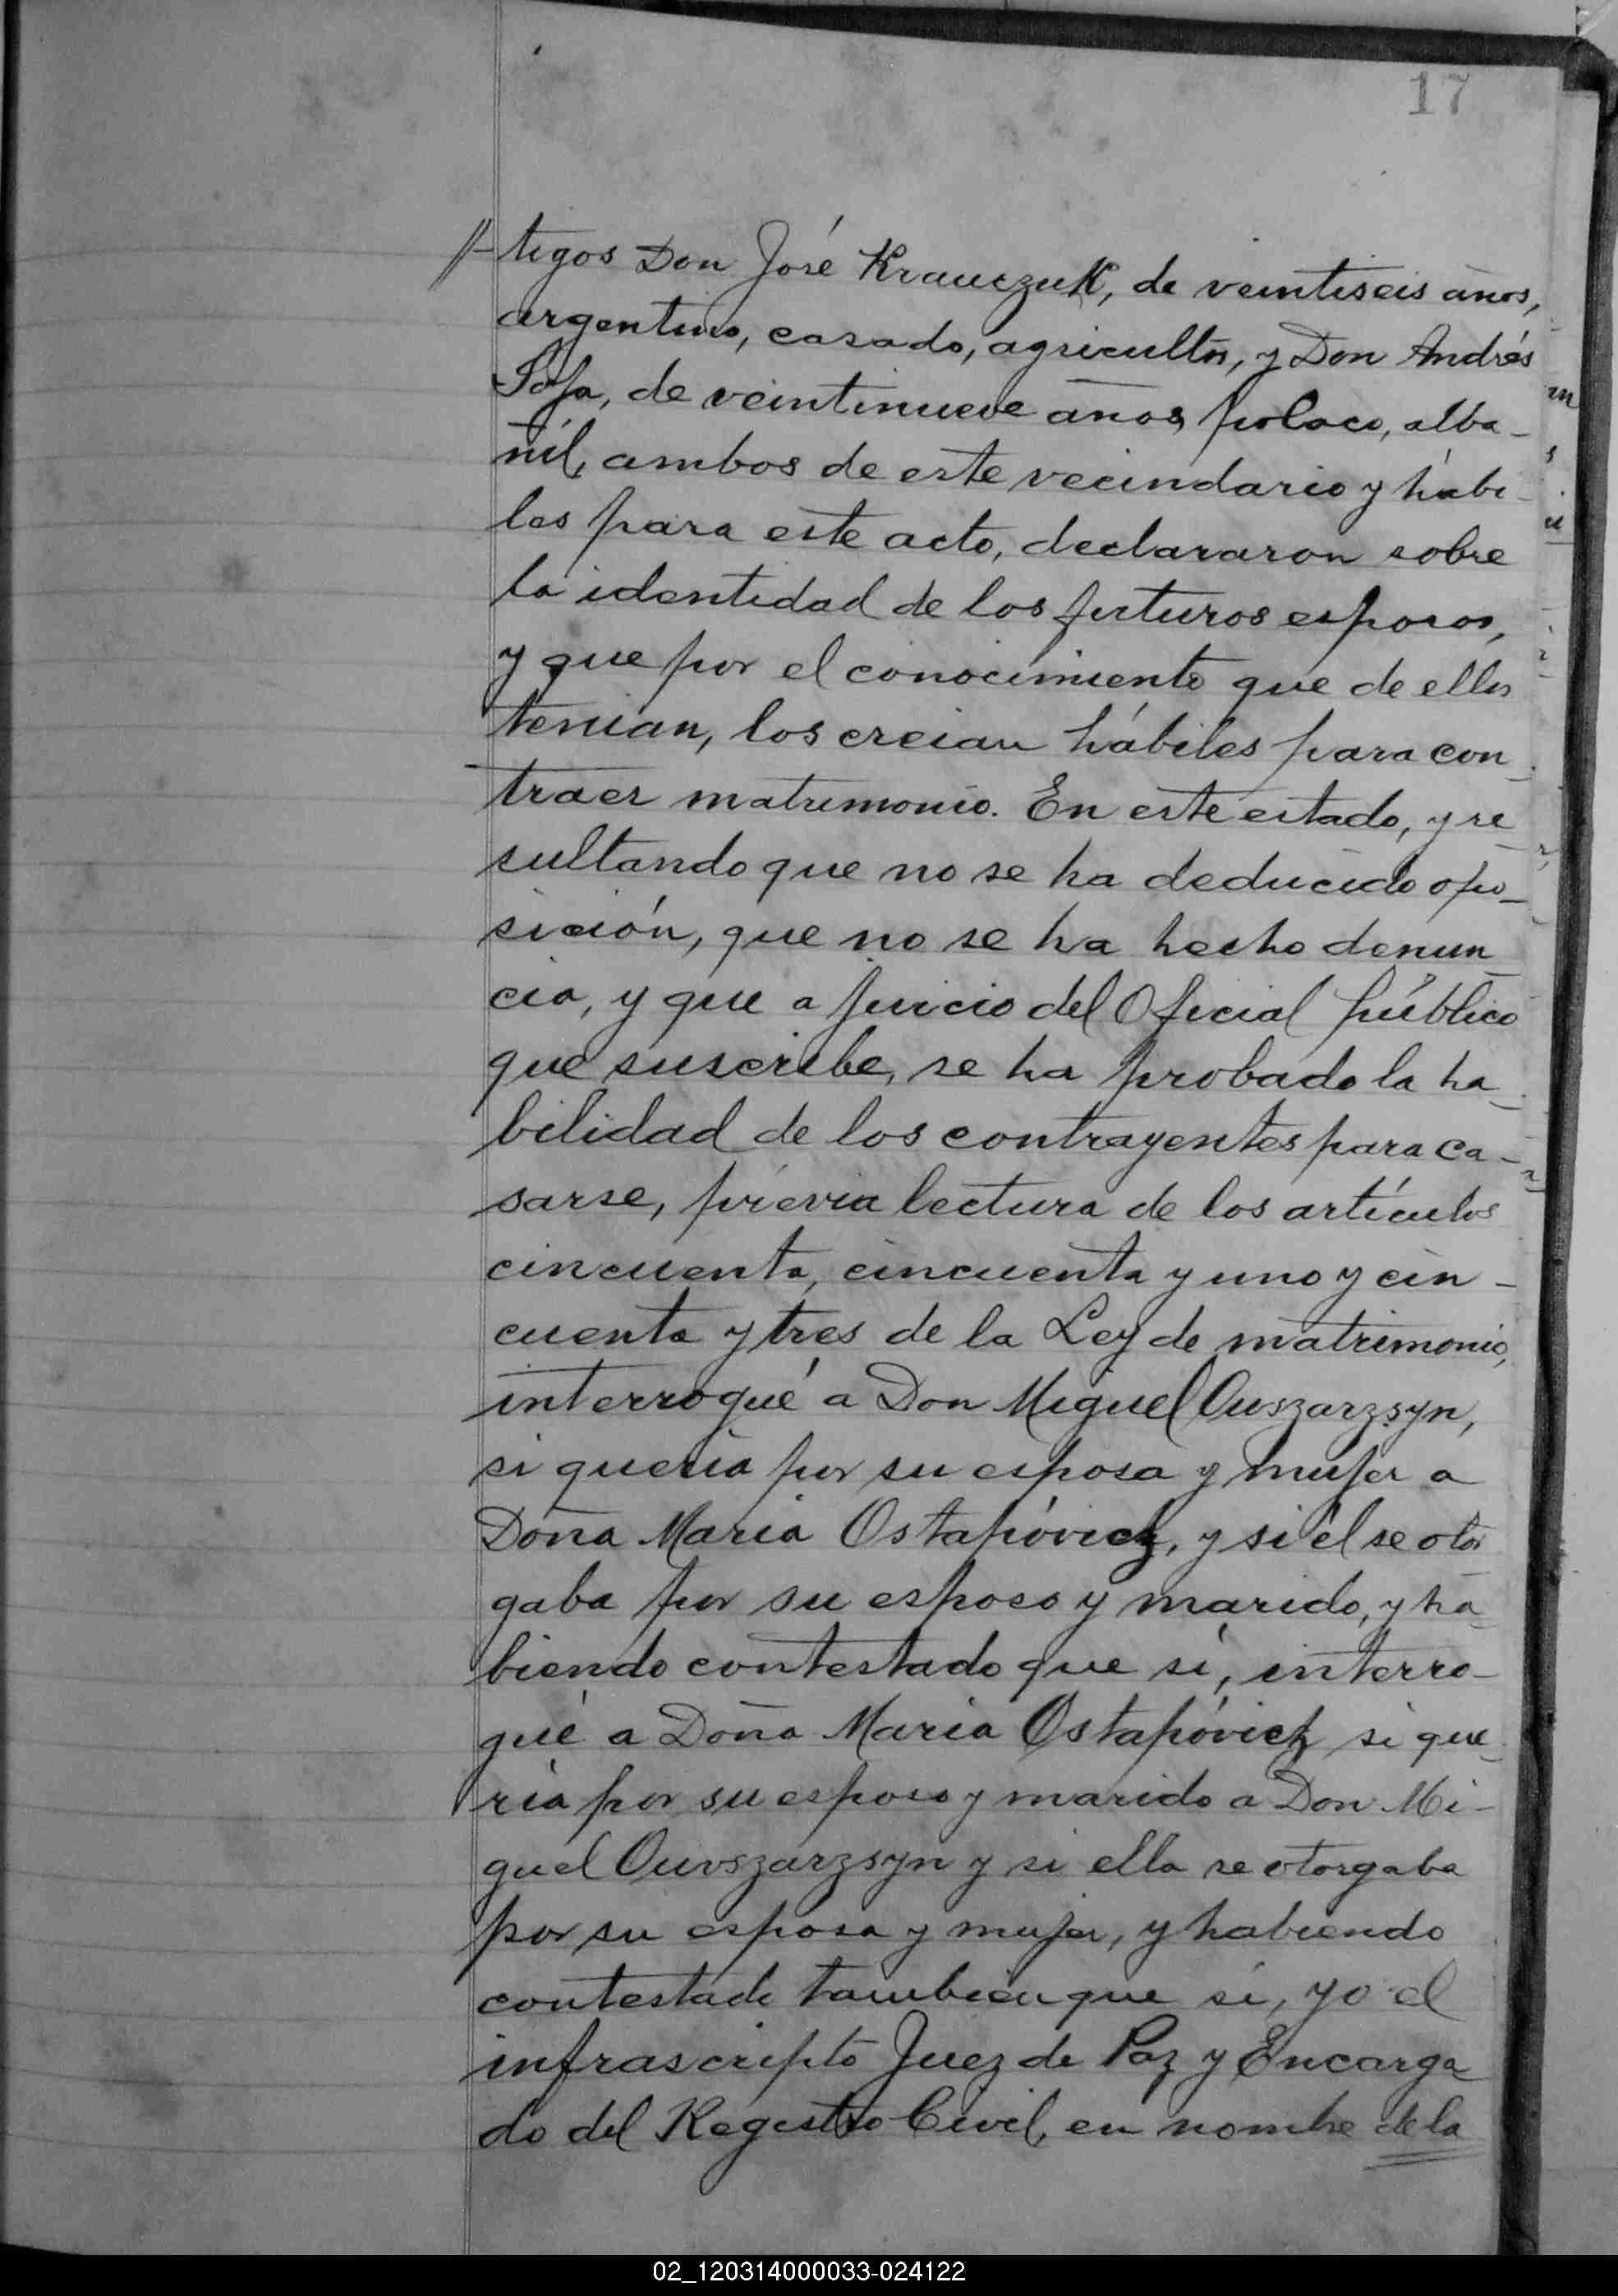 17
//-tigos Don José Krauczuk, de veintiseis años,
argentino, casado, agricultor, y Don Andrés
Sofa, de veintinueve años, polaco, alba-
ñil, ambos de este vecindario y hábi-
les para este acto, declararon sobre
la identidad de los futuros esposos,
y que por el conocimiento que de ellos
tenian, los creian hábiles para con-
traer matrimonio. En este estado, y re-
sultando que no se ha deducido opo-
sición, que no se ha hecho denun-
cia, y que a juicio del Oficial público
que suscribe, se ha probado la ha-
bilidad de los contrayentes para ca-
sarse, prévia lectura de los artículos
cincuenta, cincuenta y uno y cin-
cuenta y tres de la Ley de matrimonio,
interrogué a Don Miguel Ouszarzsyn,
si queria por su esposa y mujer a
Doña Maria Ostapóvicz, y si él se otor
gaba por su esposo y marido, y ha-
biendo contestado que sí, interro-
gué a Doña Maria Ostapóvicz si que-
ria por su esposo y marido a Don Mi-
guel Ouvszarzsyn y si ella se otorgaba
por su esposa y mujer, y habiendo
contestado tambien que sí, yo el
infrascripto Juez de Paz y Encarga
do del Registro Civil, en nombre de la
02_120314000033-024122